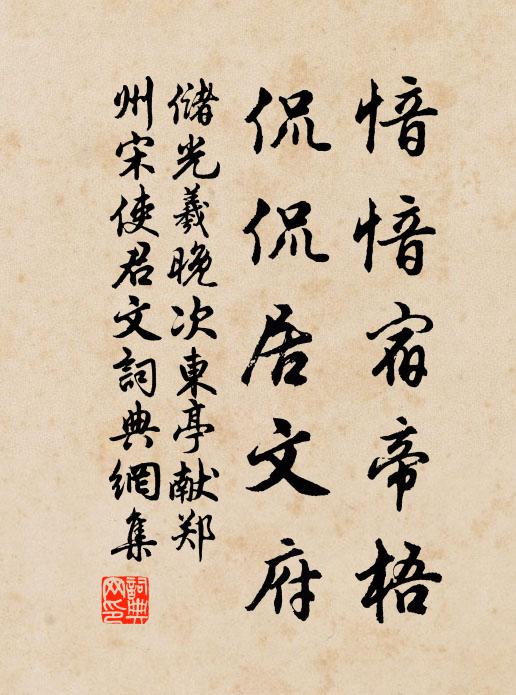 愔愔宿帝梧
侃侃居文府
儲光羲晚次東亭献郑
州宋使君文詞典網集
詞典网印